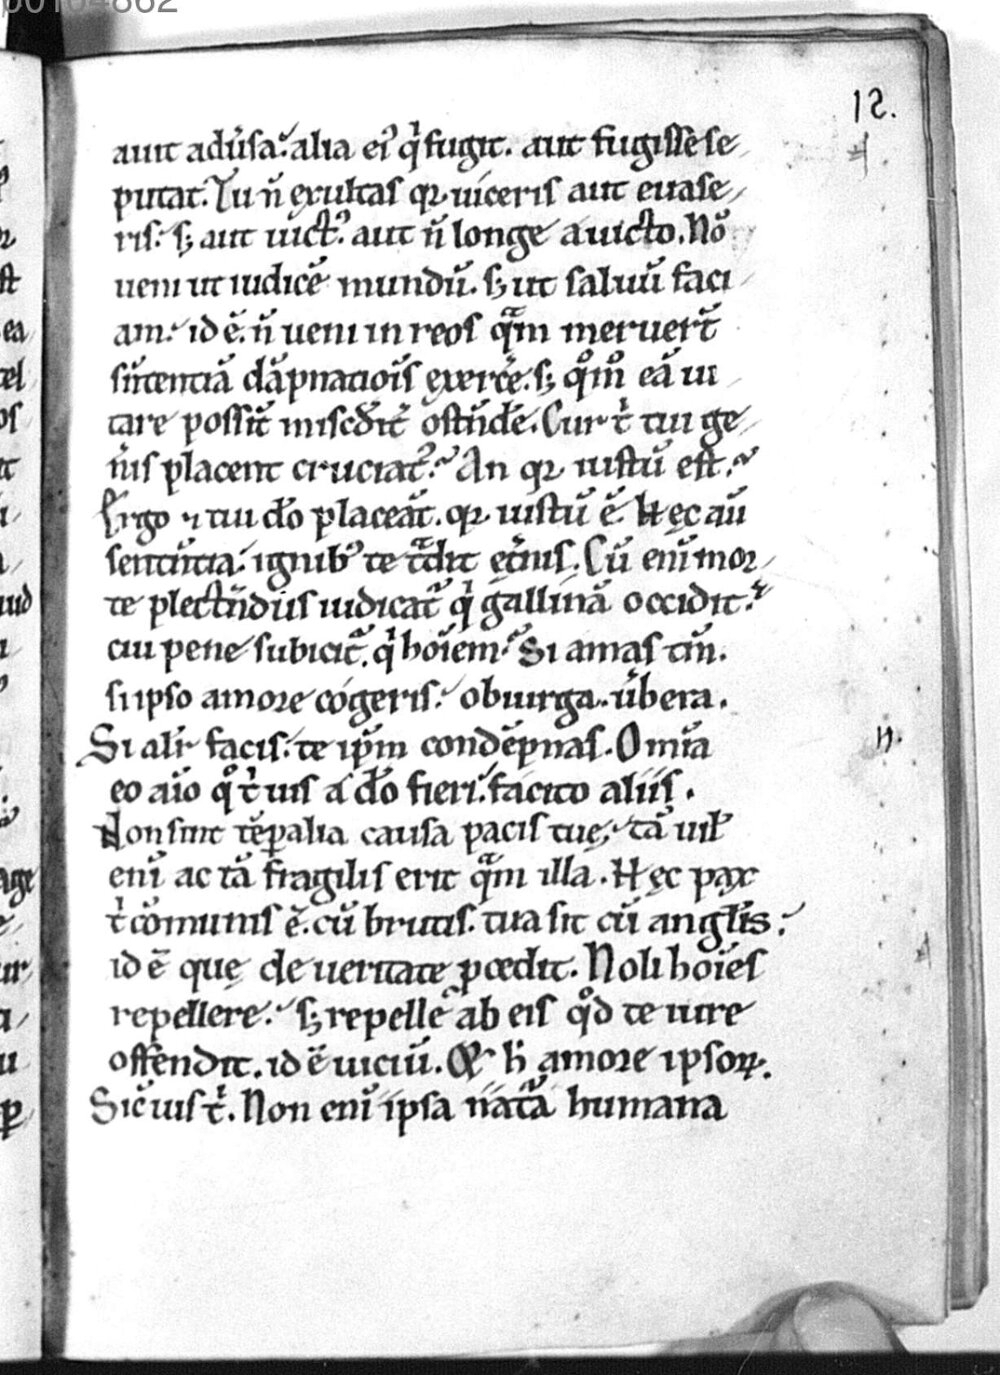 p0104862
12.
auit adūsa. alia ei᷒ qͥ fugit. aut fugisse se
putat. Tu ñ exultas qꝛ uiceris aut euase
ris. sꝫ aut uict᷒. aut ñ longe a uicto. Nō
ueni ut iudicē mundū. sꝫ ut saluū faci
am. id ē. ñ ueni in reos qᵃm meruert̄
sn̄tentiā dāpnatiois̄ exercē. sꝫ qͦmͦ eā ui
tare possit̄ misc̄dit̄ ostn̄dē. Cur tͥ tui ge
n̄is placent cruciat᷒. An qꝛ iustū est.
Ergo ⁊ tui do̅ placeāt. qꝛ iustū ē. Hęc aū
sentn̄tia. ignib᷒ te tᵃdit et̄nis. Cū eni̅ mor
te plectn̄dus iudicat᷑ qͥ gallinā occidit.
cui pene subicit᷑. qͥ hoi̅em. Si amas tm̄.
si ipso amore cogeris. obiurga. ūbera.
Si alit̄ facis. te ip̄m condēpnas. Omīa
eo aīo qͦ tͥ uis a do̅ fieri. facito aliis.
Non sint tēꝑalia causa pacis tuę. tā uil̄
eni̅ ac tā fragilis erit qᵃm illa. Hęc pax
tͥ cōmunis ē. cū brutis. tua sit cū angl̄is.
id ē quę de ueritate ꝓcedit. Noli hoi̅es
repellere. sꝫ repellē ab eis qͦd te iure
offendit. id ē uiciū. Et h̄ amore ipsoꝝ.
Sic̄ uis tͥ. Non eni̅ ipsa natᵃ humana